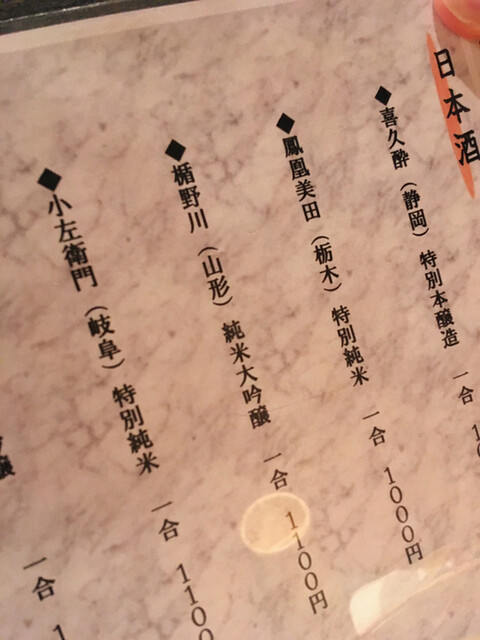 日本酒
◆喜久酔（静岡）特別本醸造 一合 1
◆鳳凰美田（栃木）特別純米 一合 1000円
◆楯野川（山形）純米大吟醸 一合 1100円
◆小左衛門（岐阜）特別純米 一合 1100
醸 一合 1